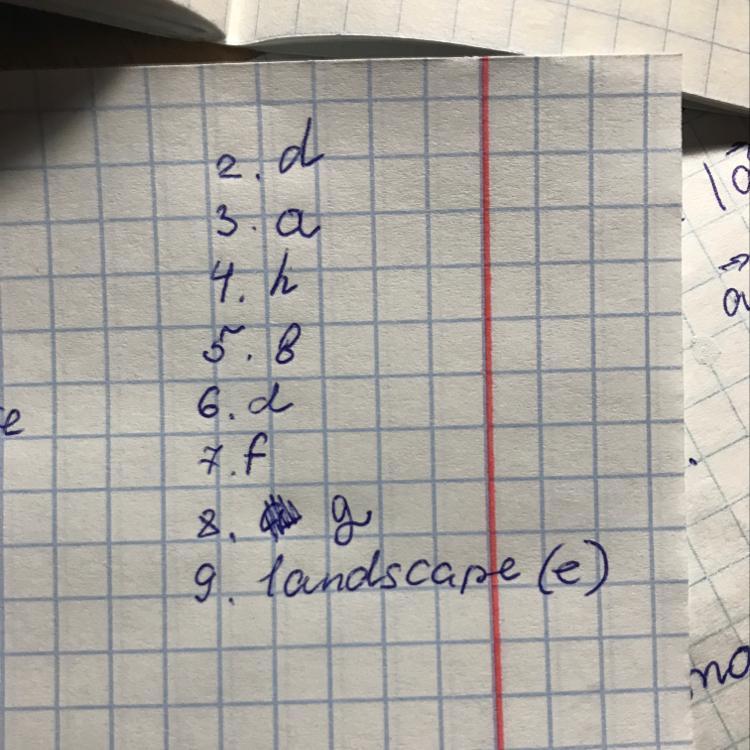 2. d
3. a
4. h
5. в
6. d
7. f
8. g
9. landscape (e)
e